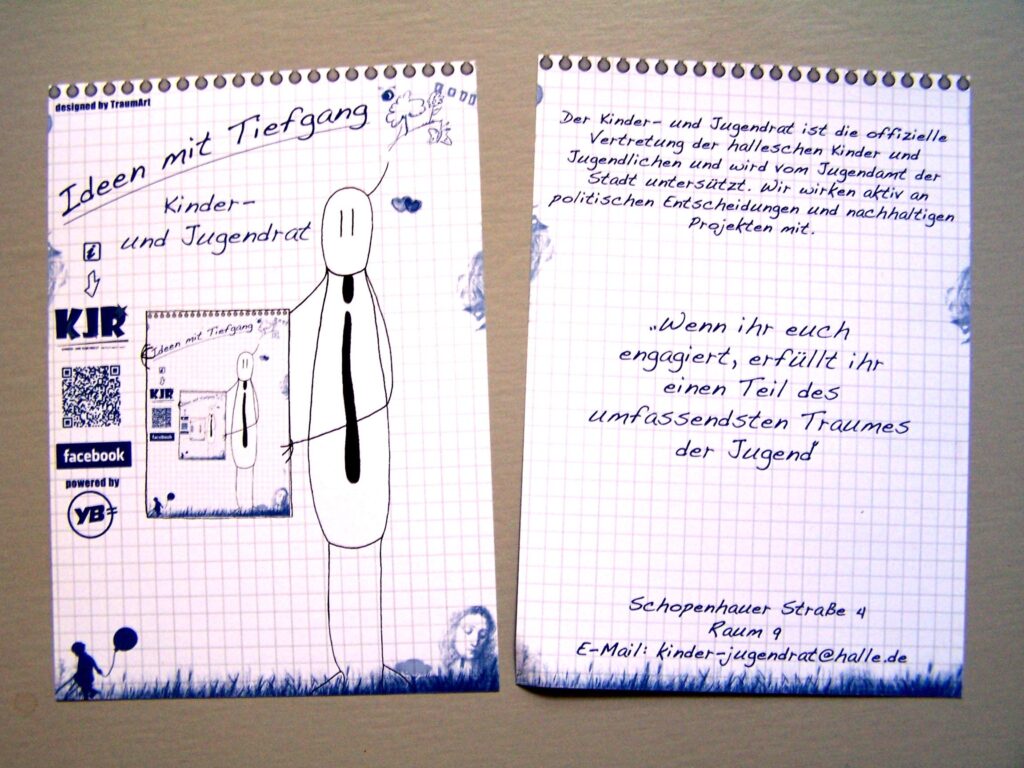 designed by TraumArt
Ideen mit Tiefgang
Kinder-
und Jugendrat
i
KJR
facebook
powered by
YB
Ideen mit Tiefgang
KJR
facebook
Der Kinder- und Jugendrat ist die offizielle
Vertretung der halleschen Kinder und
Jugendlichen und wird vom Jugendamt der
Stadt untersützt. Wir wirken aktiv an
politischen Entscheidungen und nachhaltigen
Projekten mit.
„Wenn ihr euch
engagiert, erfüllt ihr
einen Teil des
umfassendsten Traumes
der Jugend"
Schopenhauer Straße 4
Raum 9
E-Mail: kinder-jugendrat@halle.de